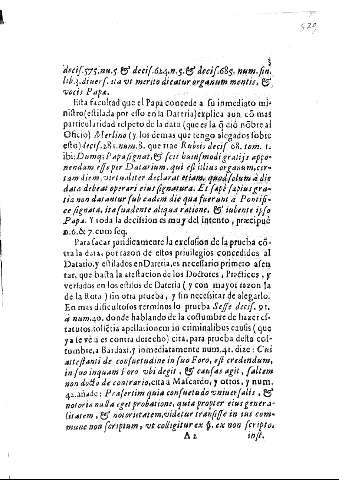 3
decis. 575. nu. 5 & decis. 624. n. 5. & decis. 685. num. fin.
lib. 3. divers. ita vt merito dicatur organum mentis, &
vocis Papæ.
Esta facultad que el Papa concede a su inmediato mi-
nistro (estilada por esso en la Dataria) explica aun, cõ mas
particularidad respeto de la data (que es la q̃ diò nõbre al
Oficio) Merlino (y los demas que tengo alegados sobre
esto) decis. 281. num. 8. que trae Rubeis decis. 68. tom. 1.
ibi: Dumq; Papa signat, & scit huiusmodi gratijs appo-
nendam esse per Datarium, qui est illius organum, cer-
tam diem, virtualiter declarat etiam, quod solum à die
data debeat operari eius signatura. Et sæpè sapius gra-
tia non datantur sub eadem die qua fuerunt à Pontifi-
ce signata, ita suadente aliqua ratione, & iubente ipso
Papa. Y toda la decission es muy del intento, præcipuè
n. 6. & 7. cum seq.
Para sacar juridicamente la exclusion de la prueba cõ-
tra la data, por razon de estos privilegios concedidos al
Datario, y estilados en Dataria, es necessario primero assen-
tar, que basta la atestacion de los Doctores, Practicos, y
versados en los estilos de Dataria (y con mayor razon la
de la Rota) sin otra prueba, y sin necessitar de alegarlo.
En mas dificultosos terminos lo prueba Sesse decis. 91.
à num. 40. donde hablando de la costumbre de hazer es-
tatutos, tollẽtia apellationem in criminalibus causis (que
ya se vè es contra derecho) cita, para prueba desta cos-
tumbre, a Bardaxi, y inmediatamente num. 41. dize: Cui
attestanti de consuetudine in suo Foro, est credendum,
in suo inquam Foro vbi degit, & causas agit, saltem
non docto de contrario, cita a Mascardo, y otros, y num.
42. añade: Præsertim quia consuetudo vniuersalis, &
notoria nulla eget probatione, quia propter eius genera-
litatem, & notorietatem, videtur transisse in ius com-
mune non scriptum, vt colligitur ex §. ex non scripto.
A 2 inst.